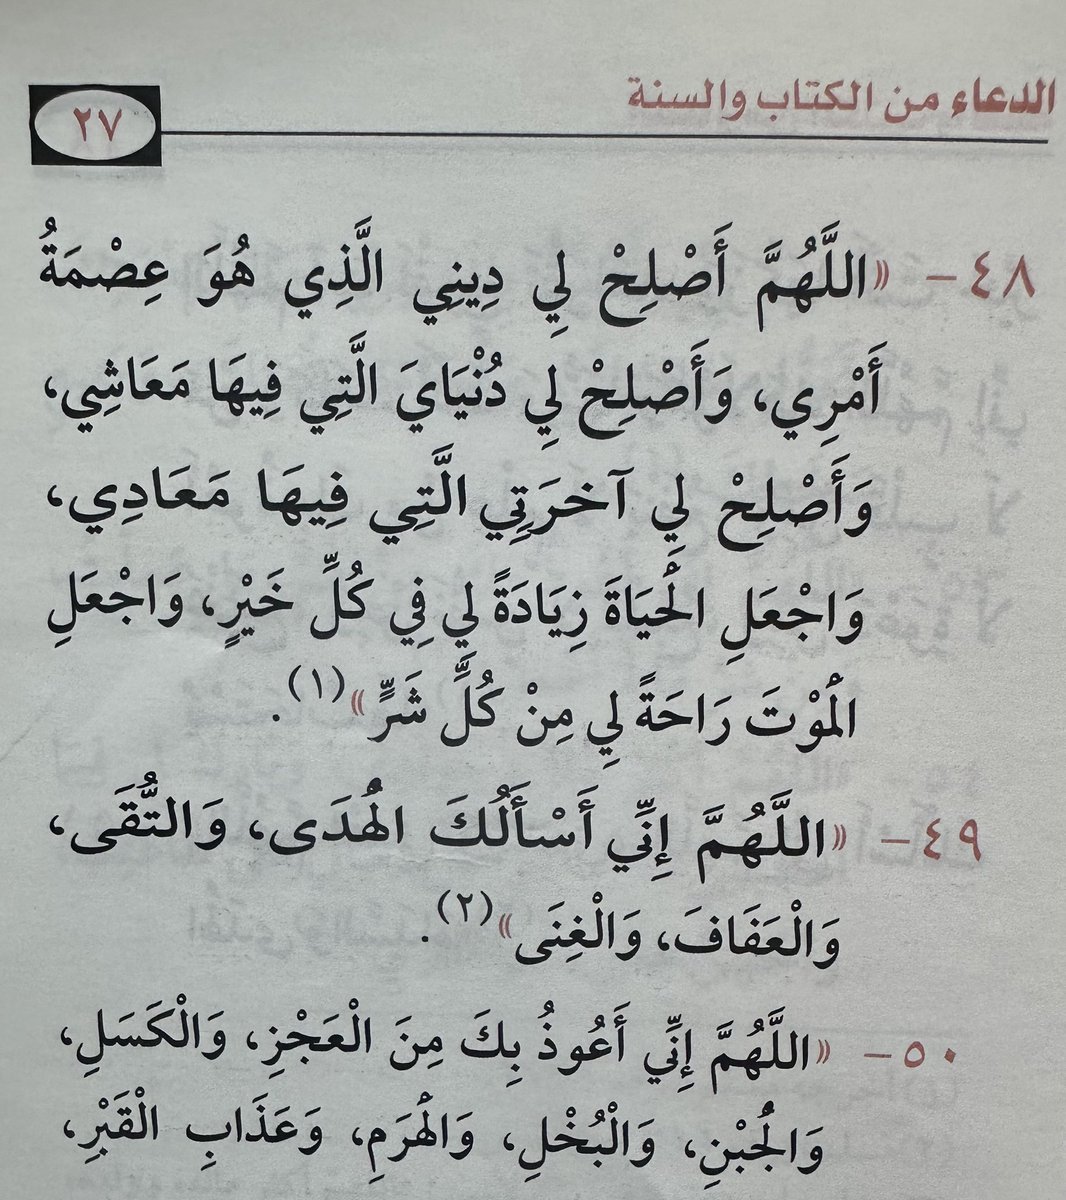 الدعاء من الكتاب والسنة
٢٧
٤٨- «اللَّهُمَّ أَصْلِحْ لِي دِينِي الَّذِي هُوَ عِصْمَةُ
أَمْرِي، وَأَصْلِحْ لِي دُنْيَايَ الَّتِي فِيهَا مَعَاشِي،
وَأَصْلِحْ لِي آخرَتِي الَّتِي فِيهَا مَعَادِي،
وَاجْعَلِ الْحَيَاةَ زِيَادَةً لِي فِي كُلِّ خَيْرٍ، وَاجْعَلِ
الْمَوْتَ رَاحَةً لِي مِنْ كُلِّ شَرٍّ»(١).
٤٩- «اللَّهُمَّ إِنِّي أَسْأَلُكَ الْهُدَى، وَالتُّقَى،
وَالْعَفَافَ، وَالْغِنَى»(٢).
٥٠- «اللَّهُمَّ إِنِّي أَعُوذُ بِكَ مِنَ الْعَجْزِ، وَالْكَسَلِ،
وَالْجُبْنِ، وَالْبُخْلِ، وَالْهَرَمِ، وَعَذَابِ الْقَبْرِ،